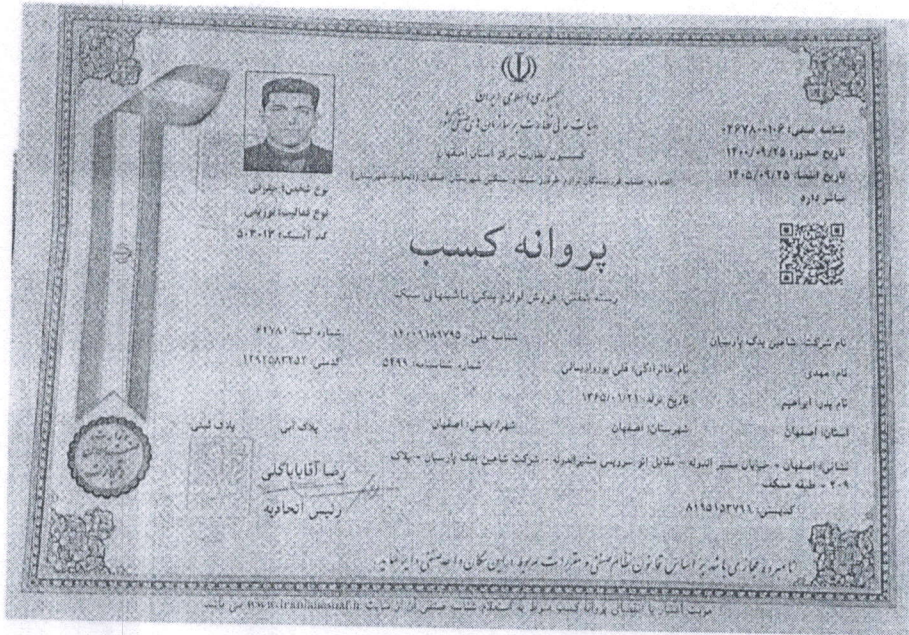 جمهوری اسلامی ایران
هیات عالی نظارت بر سازمان های صنفی کشور
کمیسیون نظارت مرکز استان اصفهان
اتحادیه صنف فروشندگان لوازم خودرو سبک و سنگین شهرستان اصفهان (اتحادیه شهرستانی)
شناسه صنفی: ۰۴۶۷۸۰۰۱۰۶
تاریخ صدور: ۱۴۰۰/۰۹/۲۵
تاریخ انقضا: ۱۴۰۵/۰۹/۲۵
مباشر دارد
نوع شخص: حقوقی
نوع فعالیت: توزیعی
کد آیسیک: ۵۰۳۰۱۳
پروانه کسب
رسته صنفی: فروش لوازم یدکی ماشینهای سبک
نام شرکت: شاهین یدک پارسیان شناسه ملی: ۱۴۰۰۹۱۸۹۷۹۵ شماره ثبت: ۶۴۷۸۱
نام: مهدی نام خانوادگی: قلی پورواریسانی شماره شناسنامه: ۵۴۹۹ کدملی: ۱۲۹۲۵۸۳۲۵۲
نام پدر: ابراهیم تاریخ تولد: ۱۳۶۵/۰۱/۲۱
استان: اصفهان شهرستان: اصفهان شهر/ بخش: اصفهان پلاک آبی پلاک ثبتی
نشانی: اصفهان - خیابان مشیر الدوله - مقابل اتو سرویس مشیرالدوله - شرکت شاهین یدک پارسیان - پلاک
۲۰۹ - طبقه همکف
کدپستی: ۸۱۹۵۱۵۳۷۹۱
رضا آقاباباگلی
رئیس اتحادیه
نامبرده مجاز می باشد بر اساس قانون نظام صنفی و مقررات مربوط در این مکان واحد صنفی دایر نماید.
رویت اعتبار یا انقضای پروانه کسب منوط به استعلام شناسه صنفی آن از سایت www.iranianasnaf.ir می باشد